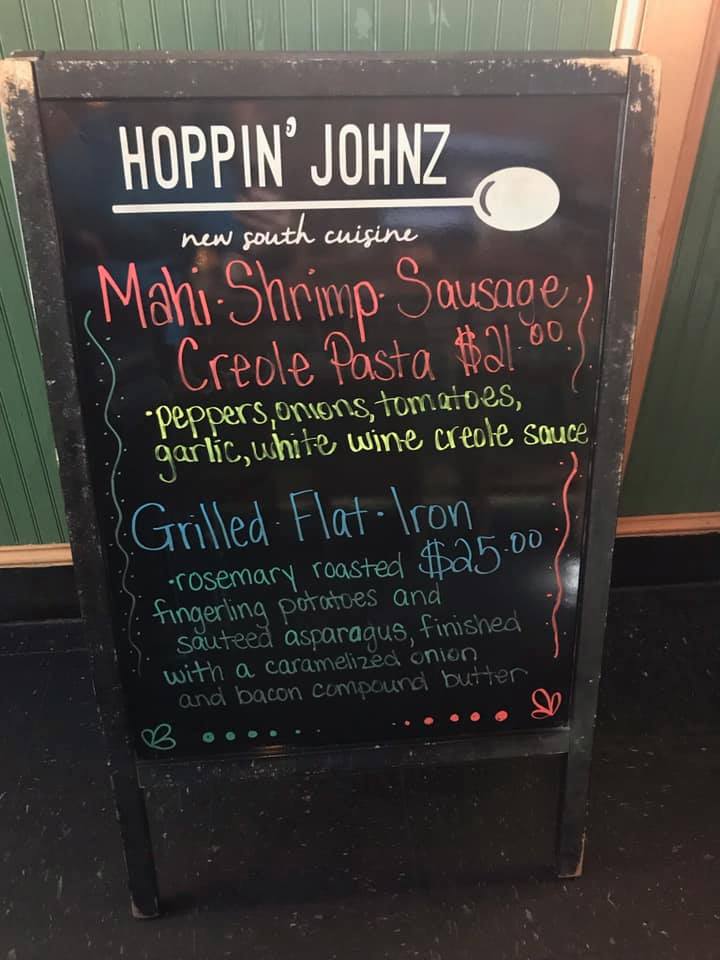 HOPPIN' JOHNZ
new south cuisine
Mahi·Shrimp·Sausage
Creole Pasta $21.00
·peppers, onions, tomatoes,
garlic, white wine creole sauce
Grilled Flat·Iron
$25.00
·rosemary roasted
fingerling potatoes and
sauteed asparagus, finished
with a caramelized onion
and bacon compound butter